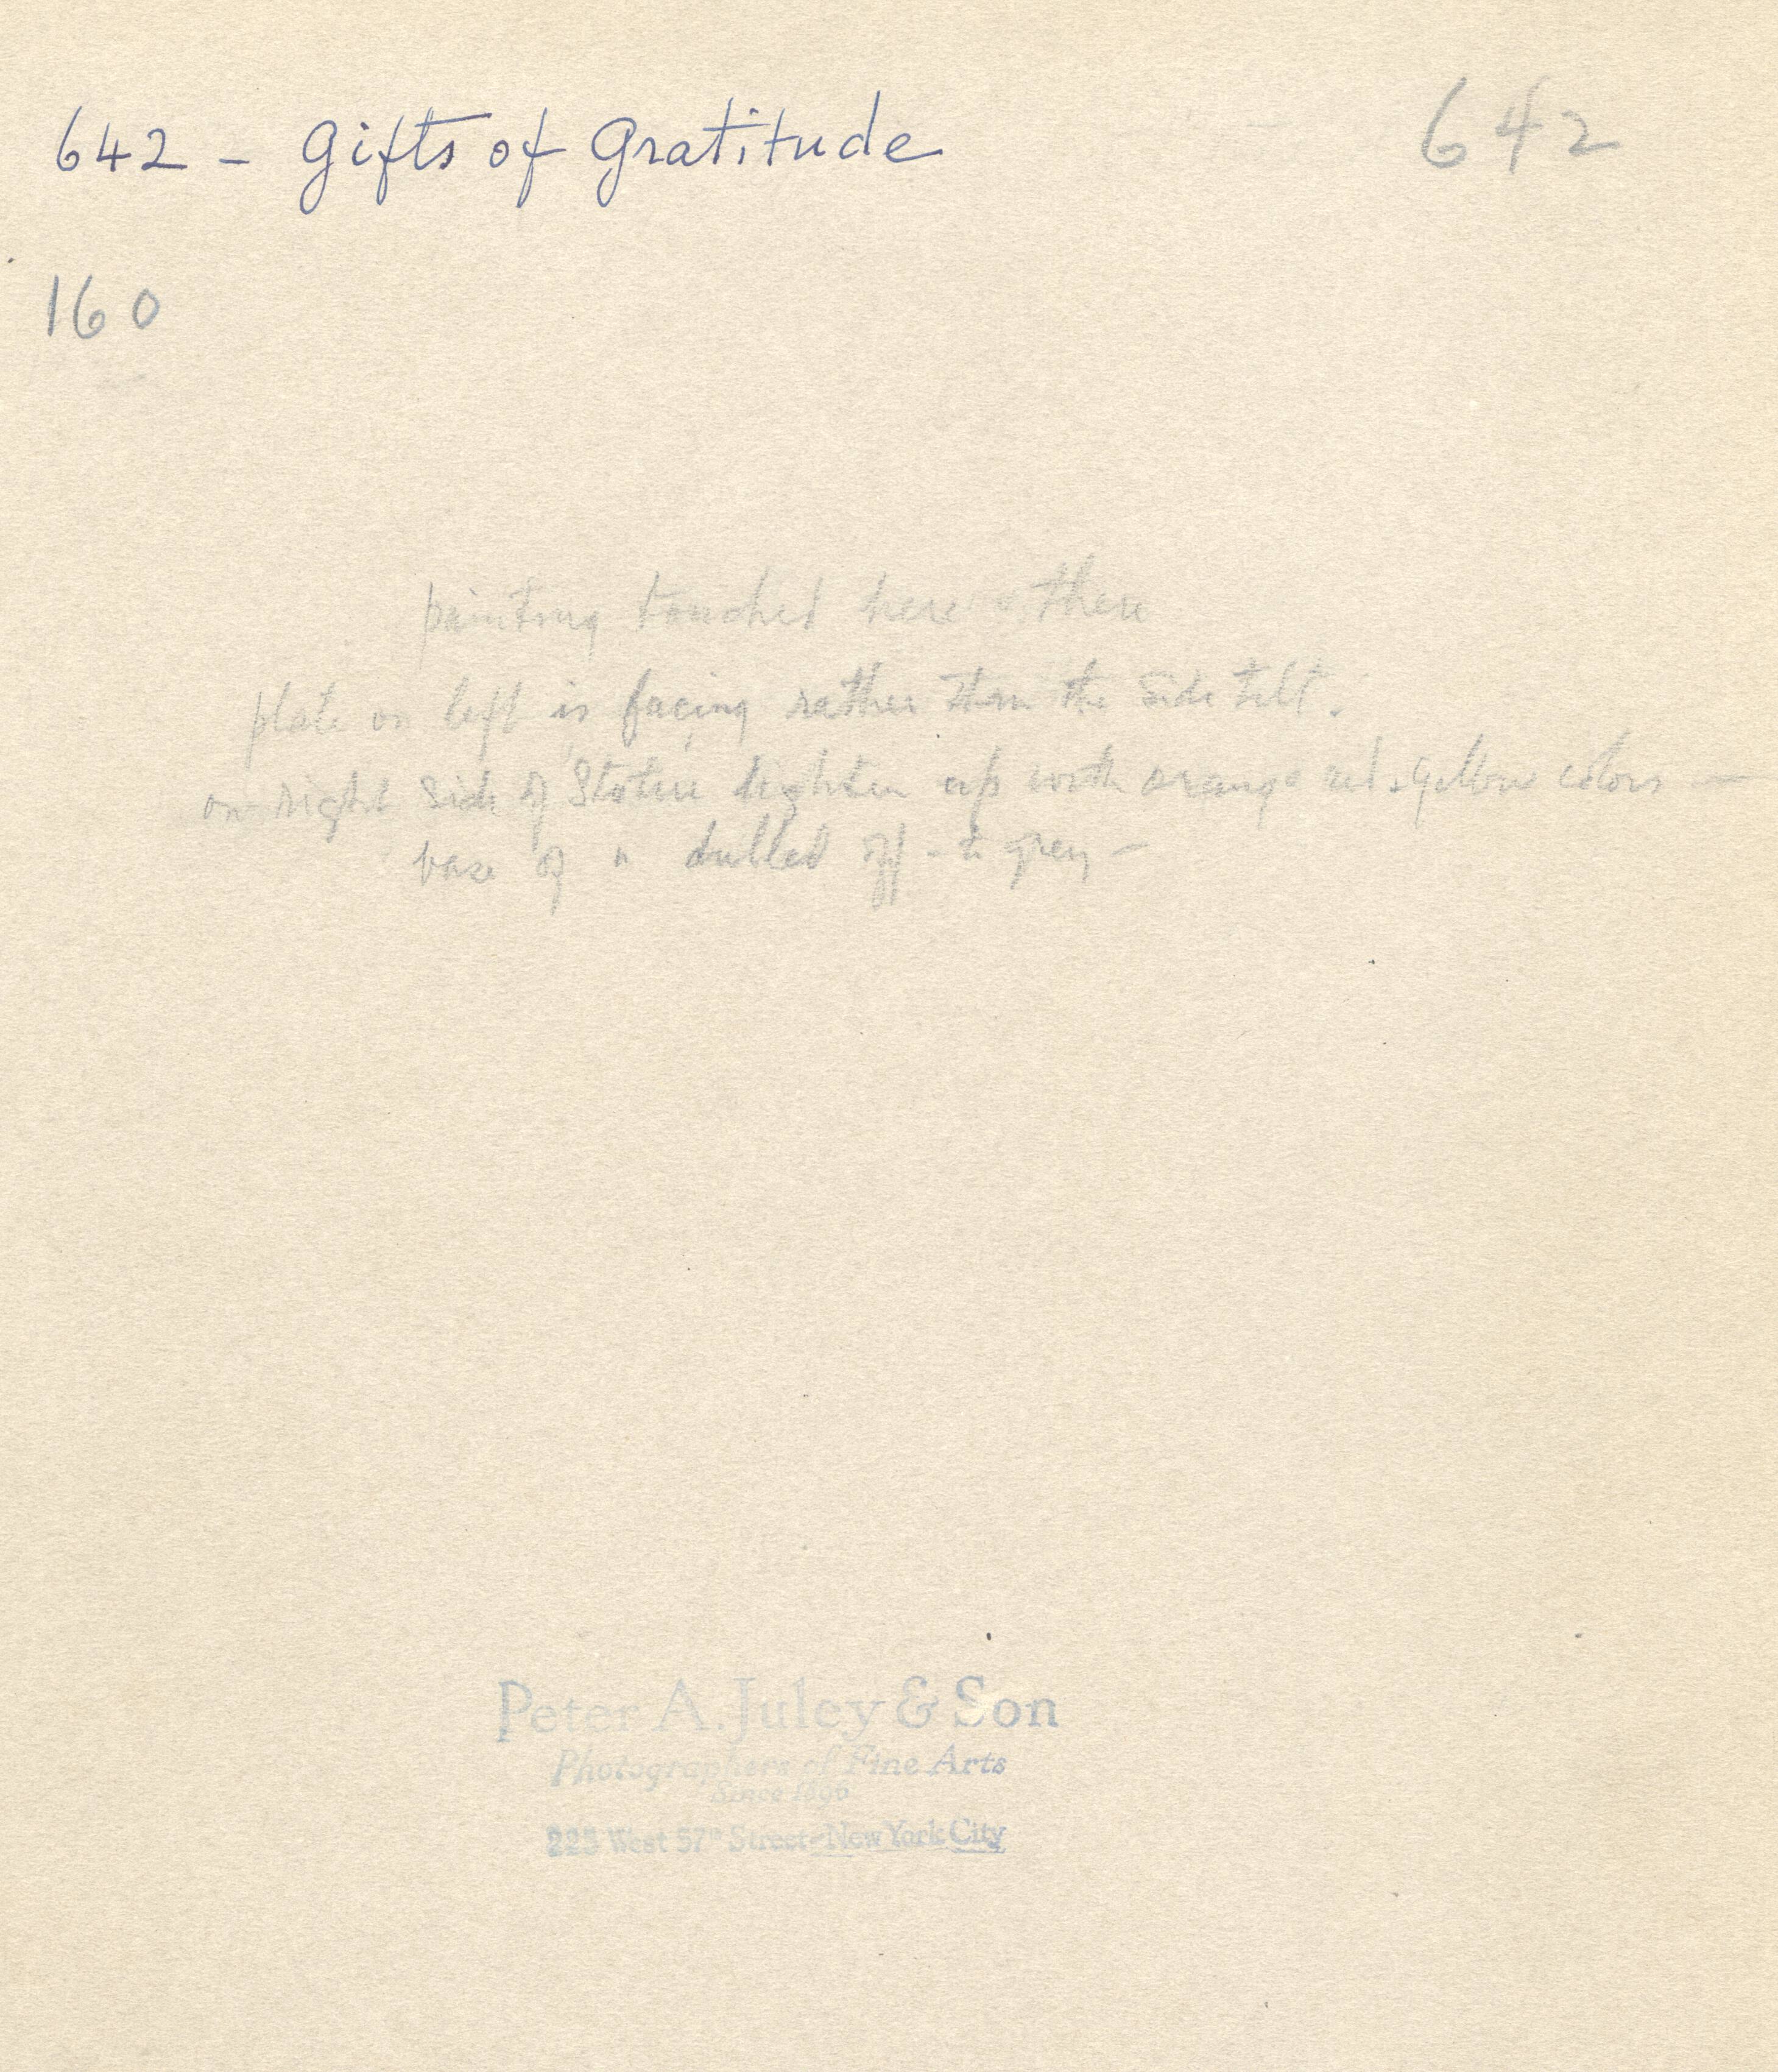 642 - Gifts of Gratitude
642
160
painting touched here & there
plate on left is facing rather than the side tilt.
on right side of Statue up with orange red & yellow colors —
base of " dulled off - to grey —
Peter A. Juley & Son
Photographers of Fine Arts
Since 1896
225 West 57th Street - New York City